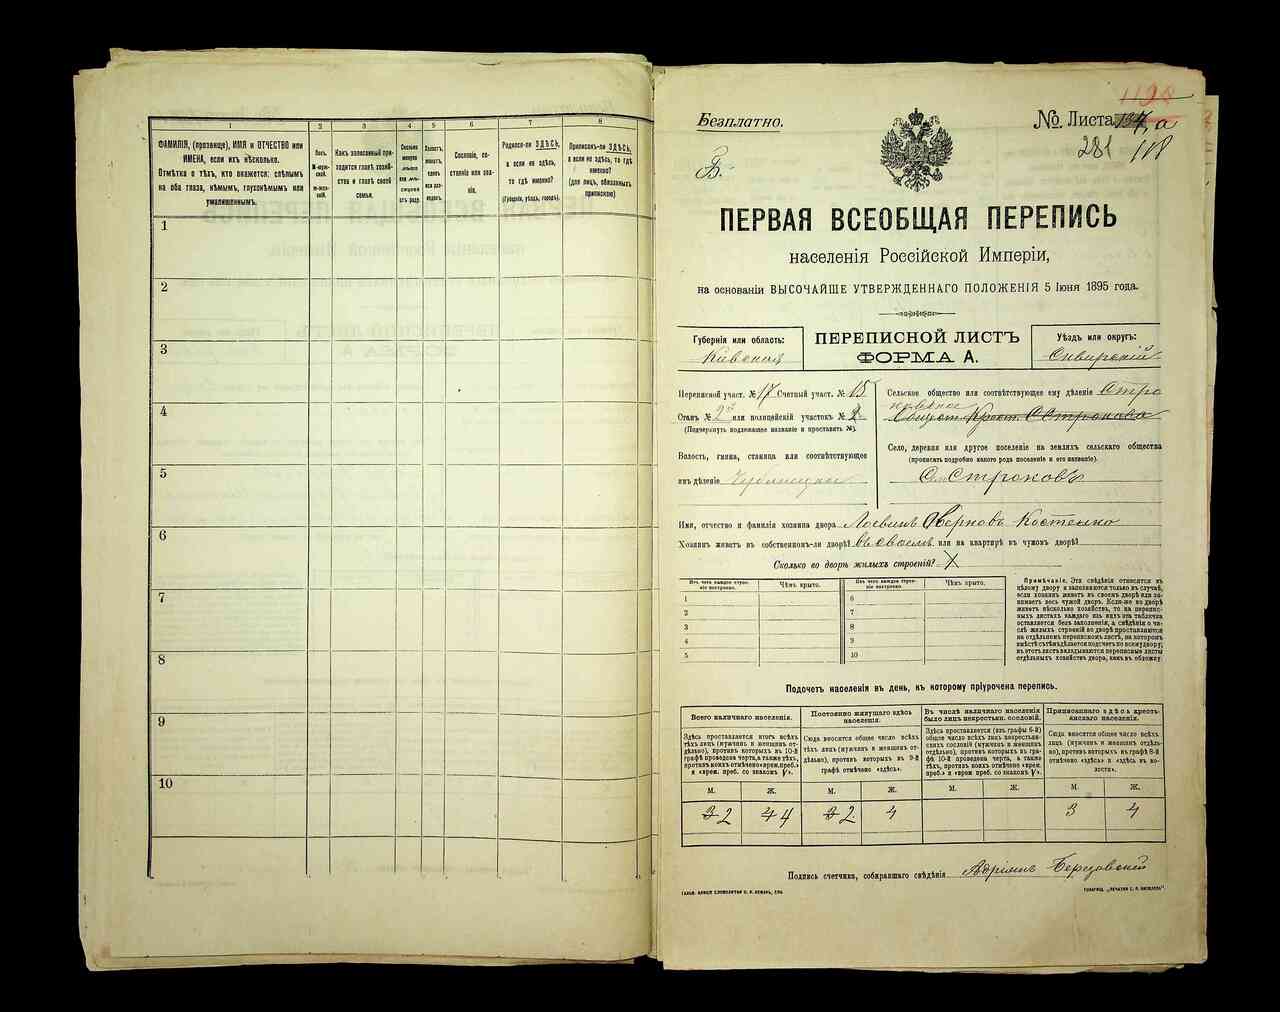 1 2 3 4 5 6 7 8
ФАМИЛІЯ, (прозвище), ИМЯ и ОТЧЕСТВО или
ИМЕНА, если ихъ нѣсколько.
Отмѣтка о тѣхъ, кто окажется: слѣпымъ
на оба глаза, нѣмымъ, глухонѣмымъ или
умалишеннымъ.
Полъ.
М-мужской.
ж-женскій.
Какъ записанный приходится главѣ хозяйства и главѣ своей семьи.
Сколько минуло лѣтъ или мѣсяцевъ отъ роду.
Холостъ, женатъ, вдовъ или разведенъ.
Сословіе, состояніе или званіе.
Родился-ли ЗДѢСЬ,
а если не здѣсь,
то гдѣ именно?
(Губернія, уѣздъ, городъ).
Приписанъ-ли ЗДѢСЬ,
а если не здѣсь, то гдѣ
именно?
(для лицъ, обязанныхъ
припискою)
1
2
3
4
5
6
7
8
9
10
1198
Безплатно.
№ Листа 137, а
281 118
Б.
ПЕРВАЯ ВСЕОБЩАЯ ПЕРЕПИСЬ
населенія Россійской Имперіи,
на основаніи ВЫСОЧАЙШЕ УТВЕРЖДЕННАГО ПОЛОЖЕНІЯ 5 Іюня 1895 года.
Губернія или область:
Кіевская
ПЕРЕПИСНОЙ ЛИСТЪ
ФОРМА А.
Уѣздъ или округъ:
Сквирскій
Переписной участ. № 17 Счетный участ. № 15
Станъ № 2й или полицейскій участокъ № 2
(Подчеркнуть подлежащее названіе и проставить №).
Волость, гмина, станица или соотвѣтствующее
имъ дѣленіе
Сельское общество или соотвѣтствующее ему дѣленіе Стро
ковское
Село, деревня или другое поселеніе на земляхъ сельскаго общества
(прописать подробно какого рода поселеніе и его названіе).
С. Строковъ
Имя, отчество и фамилія хозяина двора Логвинъ Аверковъ Костенко
Хозяинъ живетъ въ собственномъ-ли дворѣ? въ своемъ или на квартирѣ въ чужомъ дворѣ?
Сколько во дворѣ жилыхъ строеній? X
Изъ чего каждое строеніе построено. Чѣмъ крыто. Изъ чего каждое строеніе построено. Чѣмъ крыто.
1 6
2 7
3 8
4 9
5 10
Примѣчаніе. Эти свѣдѣнія относятся къ
цѣлому двору и заполняются только въ случаѣ,
если хозяинъ живетъ въ своемъ дворѣ или занимаетъ весь чужой дворъ. Если-же во дворѣ
живетъ нѣсколько хозяйствъ, то на переписныхъ листахъ каждаго изъ нихъ эта табличка
оставляется безъ заполненія, а свѣдѣнія о числѣ жилыхъ строеній во дворѣ проставляются
на отдѣльномъ переписномъ листѣ, на которомъ
вмѣстѣ съ тѣмъ дѣлается подсчетъ по всему двору;
въ этотъ листъ вкладываются переписные листы
отдѣльныхъ хозяйствъ двора, какъ въ обложку.
Подсчетъ населенія въ день, къ которому пріурочена перепись.
Всего наличнаго населенія.
Здѣсь проставляется итогъ всѣхъ
тѣхъ лицъ (мужчинъ и женщинъ отдѣльно), противъ которыхъ въ 10-й
графѣ проведена черта, а также тѣхъ,
противъ коихъ отмѣчено «врем. преб.»
и «врем. преб. со знакомъ V».
Постоянно живущаго здѣсь
населенія.
Сюда вносится общее число всѣхъ
тѣхъ лицъ (мужчинъ и женщинъ отдѣльно), противъ которыхъ въ 9-й
графѣ отмѣчено «здѣсь».
Въ числѣ наличнаго населенія
было лицъ некрестьян. сословій.
Здѣсь проставляется (изъ графы 6-й)
общее число всѣхъ лицъ некрестьянскихъ сословій (мужчинъ и женщинъ
отдѣльно), противъ которыхъ въ графѣ 10-й проведена черта, а также
тѣхъ, противъ коихъ отмѣчено «врем.
преб.» и «врем преб. со знакомъ V».
Приписаннаго здѣсь крестьянскаго населенія.
Сюда вносится общее число всѣхъ
лицъ (мужчинъ и женщинъ отдѣльно), противъ которыхъ въ графѣ 8-й
отмѣчено «здѣсь» и «здѣсь въ волости».
М. Ж. М. Ж. М. Ж. М. Ж.
3 2 4 4 3 2 4 3 4
Подпись счетчика, собиравшаго свѣдѣнія